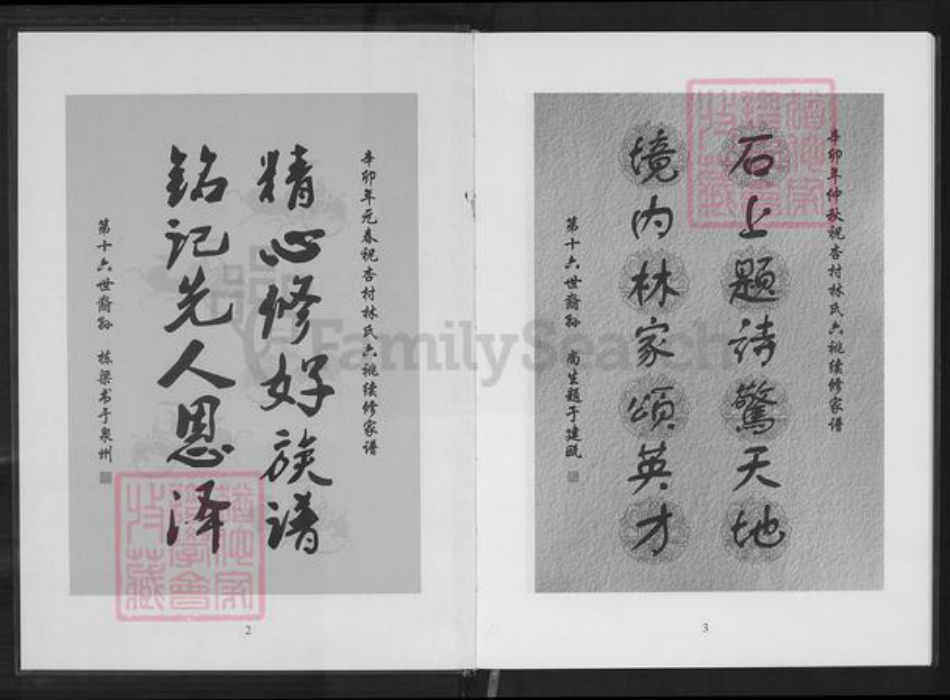 辛卯年元春祝杏村林氏六桃续修家谱
精心修好族谱
铭记先人恩泽
第十六世裔孙 栋梁书于泉州
2
辛卯年仲秋祝杏村林氏六桃续修家谱
石上题诗驚天地
境内林家頌英才
第十六世裔孙 尚生题于建瓯
3
FamilySearch